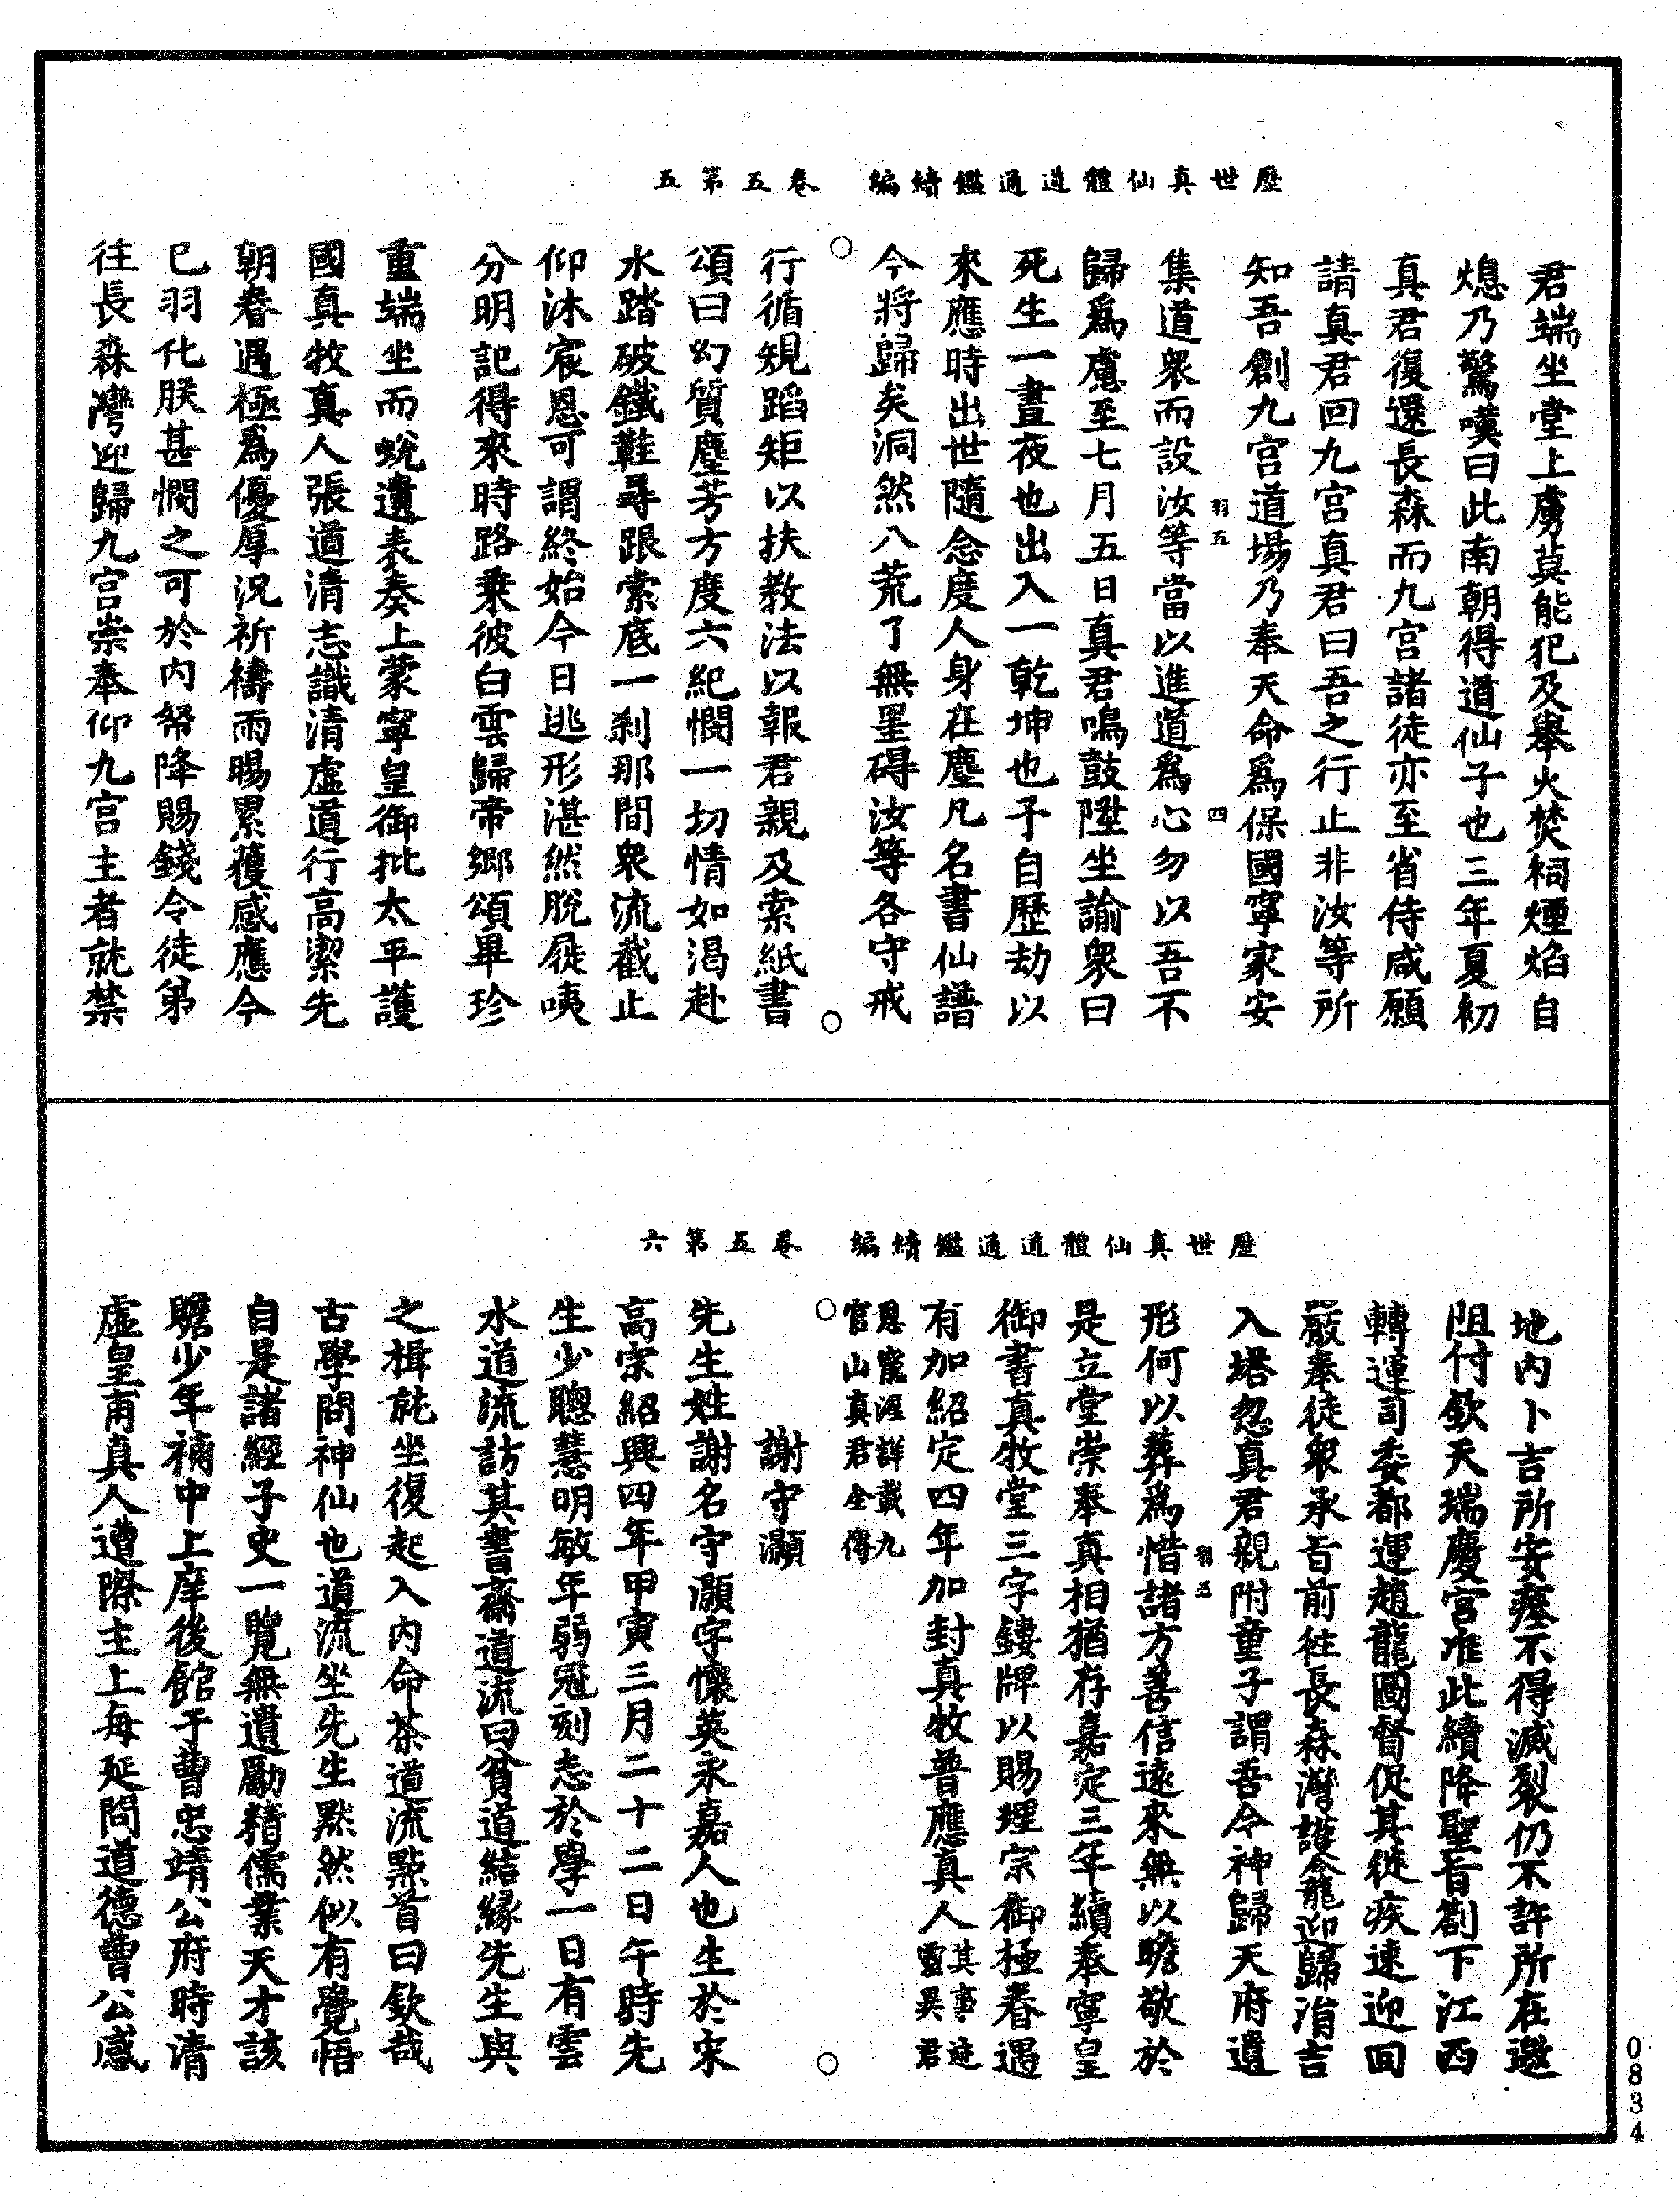 歷世真仙體道通鑑續編　卷五第五
君端坐堂上虜莫能犯及舉火焚祠煙焰自
熄乃驚嘆曰此南朝得道仙子也三年夏初
真君復還長森而九宫諸徒亦至省侍咸願
請真君回九宫真君曰吾之行止非汝等所
知吾創九宫道場乃奉天命爲保國寧家安
羽五　四
集道衆而設汝等當以進道爲心勿以吾不
歸爲慮至七月五日真君鳴鼓陞坐諭衆曰
死生一晝夜也出入一乾坤也予自歷劫以
來應時出世隨念度人身在塵凡名書仙譜
今將歸矣洞然八荒了無罣碍汝等各守戒
行循規蹈矩以扶教法以報君親及索紙書
頌曰幻質塵芳方度六紀憫一切情如渴赴
水踏破鐵鞋尋跟索底一剎那間衆流截止
仰沐宸恩可謂終始今日逃形湛然脫屣咦
分明記得來時路乗彼白雲歸帝鄉頌畢珍
重端坐而蛻遺表奏上蒙寧皇御批太平護
國真牧真人張道清志識清虛道行高潔先
朝眷遇極爲優厚况祈禱雨暘累獲感應今
已羽化朕甚憫之可於内帑降賜錢令徒弟
往長森灣迎歸九宫崇奉仰九宫主者就禁
歷世真仙體道通鑑續編　卷五第六
地内卜吉所安瘞不得滅裂仍不許所在邀
阻付欽天瑞慶宫准此續降聖旨劄下江西
轉運司委都運趙龍圖督促其徒疾速迎回
嚴奉徒衆承旨前往長森灣護龕迎歸涓吉
入塔忽真君親附童子謂吾今神歸天府遺
羽五
形何以葬爲惜諸方善信遠來無以瞻敬於
是立堂崇奉真相猶存嘉定三年續奉寧皇
御書真牧堂三字鏤牌以賜理宗御極眷遇
有加紹定四年加封真牧普應真人其事迹靈異君
恩寵渥詳載九
官山真君全傳
謝守灝
先生姓謝名守灝字懷英永嘉人也生於宋
高宗紹興四年甲寅三月二十二日午時先
生少聰慧明敏年弱冠刻志於學一日有雲
水道流訪其書齋道流曰貧道結緣先生與
之揖就坐復起入内命茶道流點首曰欽哉
古學問神仙也道流坐先生默然似有覺悟
自是諸經子史一覽無遺勵精儒業天才該
贍少年補中上庠後館于曹忠靖公府時清
虛皇甫真人遭際主上每延問道德曹公感
0834